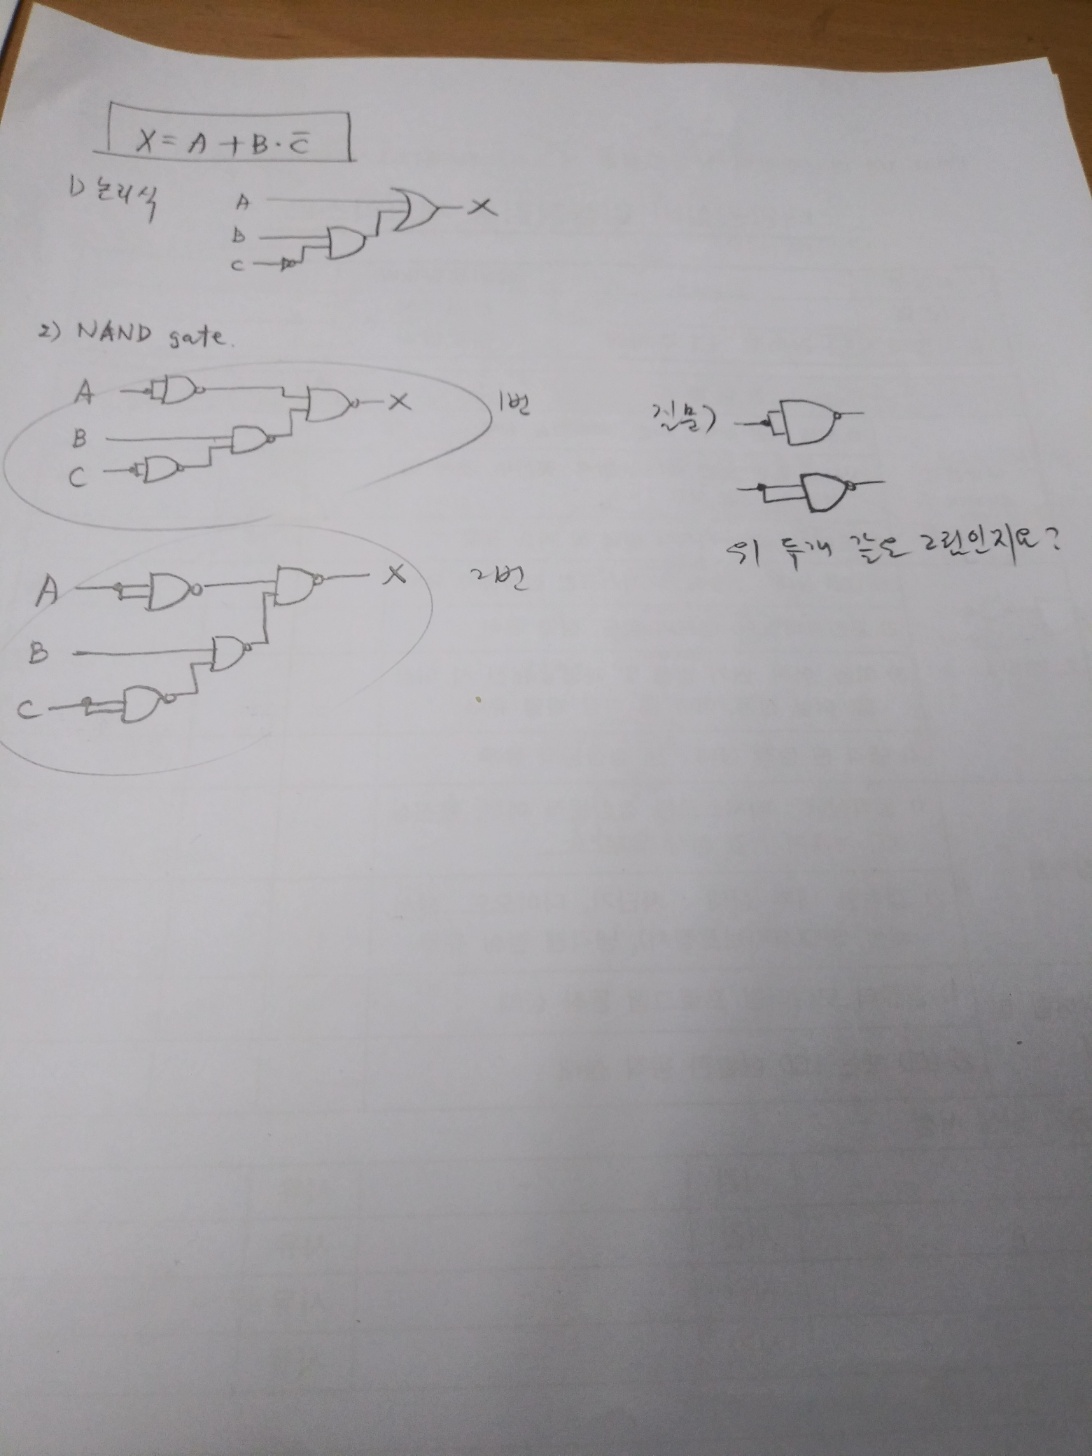 X = A + B · C̄
1) 논리식
A
X
B
C
2) NAND gate.
A
X
1번
B
C
질문)
위 두개 같은 그림인지요?
A
X
2번
B
C